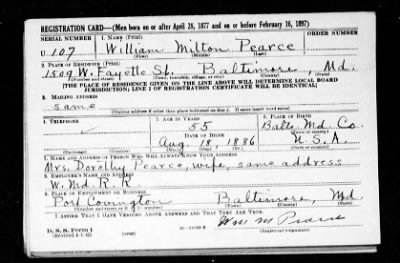 REGISTRATION CARD—(Men born on or after April 28, 1877 and on or before February 16, 1897)
SERIAL NUMBER 1. NAME (Print)
U 107 William Milton Pearce
(First) (Middle) (Last)
2. PLACE OF RESIDENCE (Print)
1509 W. Fayette St. Baltimore, Md.
(Number and street) (Town, township, village, or city) (County) (State)
[THE PLACE OF RESIDENCE GIVEN ON THE LINE ABOVE WILL DETERMINE LOCAL BOARD
JURISDICTION; LINE 2 OF REGISTRATION CERTIFICATE WILL BE IDENTICAL]
3. MAILING ADDRESS
same
[Mailing address if other than place indicated on line 2. If same insert word same]
4. TELEPHONE 5. AGE IN YEARS 6. PLACE OF BIRTH
55 Balto. Md. Co.
DATE OF BIRTH (Town or county)
Aug. 18, 1886 U.S.A.
(Mo.) (Day) (Yr.) (State or country)
7. NAME AND ADDRESS OF PERSON WHO WILL ALWAYS KNOW YOUR ADDRESS
Mrs. Dorothy Pearce, wife, same address
8. EMPLOYER'S NAME AND ADDRESS
W. Md. R. R.
9. PLACE OF EMPLOYMENT OR BUSINESS
Port Covington Baltimore, Md.
(Number and street or R. F. D. number) (Town) (County) (State)
I AFFIRM THAT I HAVE VERIFIED ABOVE ANSWERS AND THAT THEY ARE TRUE.
D. S. S. Form 1 Wm M Pearce
(Revised 4-1-42)